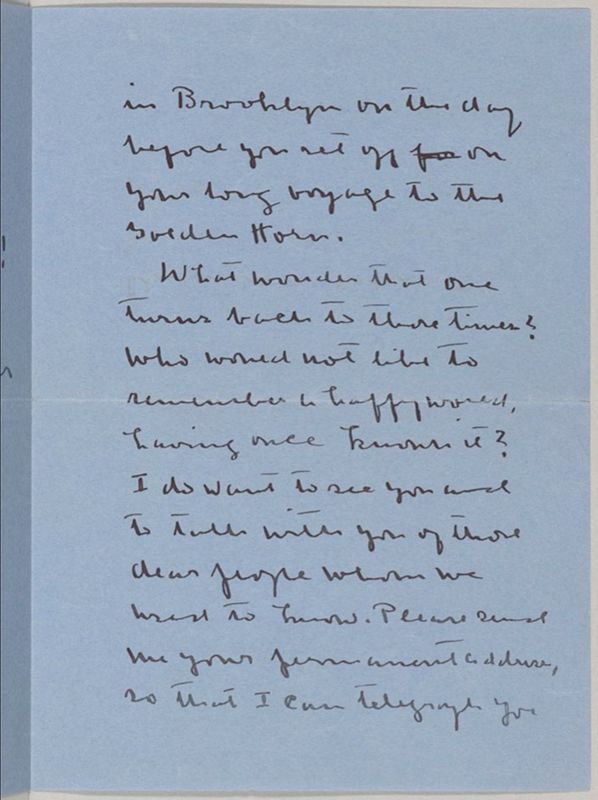 in Brooklyn on the day
before you set off on
your long voyage to the
Golden Horn.
What wonder that one
turns back to those times?
Who would not like to
remember a happy world,
having once known it?
I do want to see you and
to talk with you of those
dear people whom we
used to know. Please send
me your permanent address,
so that I can telegraph you